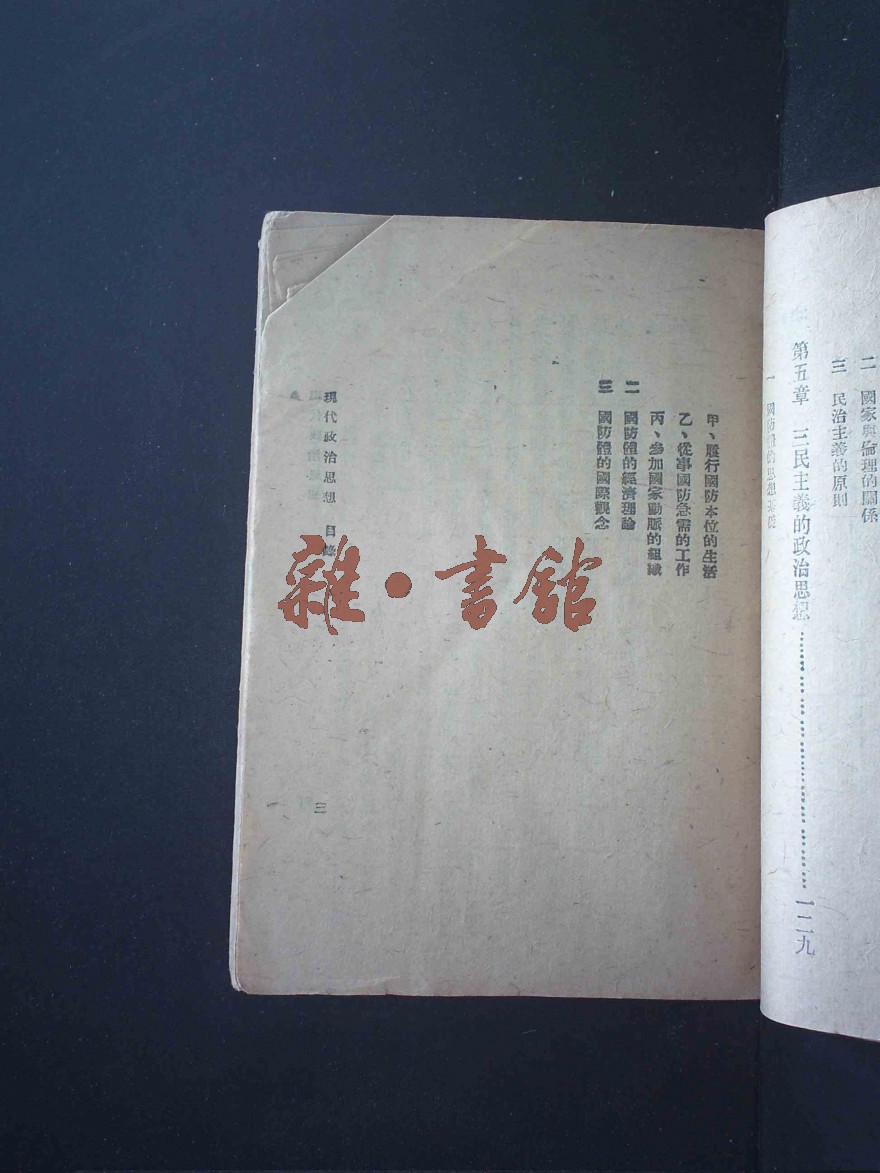 二　國家與倫理的關係
三　民治主義的原則
第五章　三民主義的政治思想……………………一二九
一　國防體的思想基礎
甲、履行國防本位的生活
乙、從事國防急需的工作
丙、參加國家動脈的組織
二　國防體的經濟理論
三　國防體的國際觀念
現代政治思想　目錄
三
雜・書館